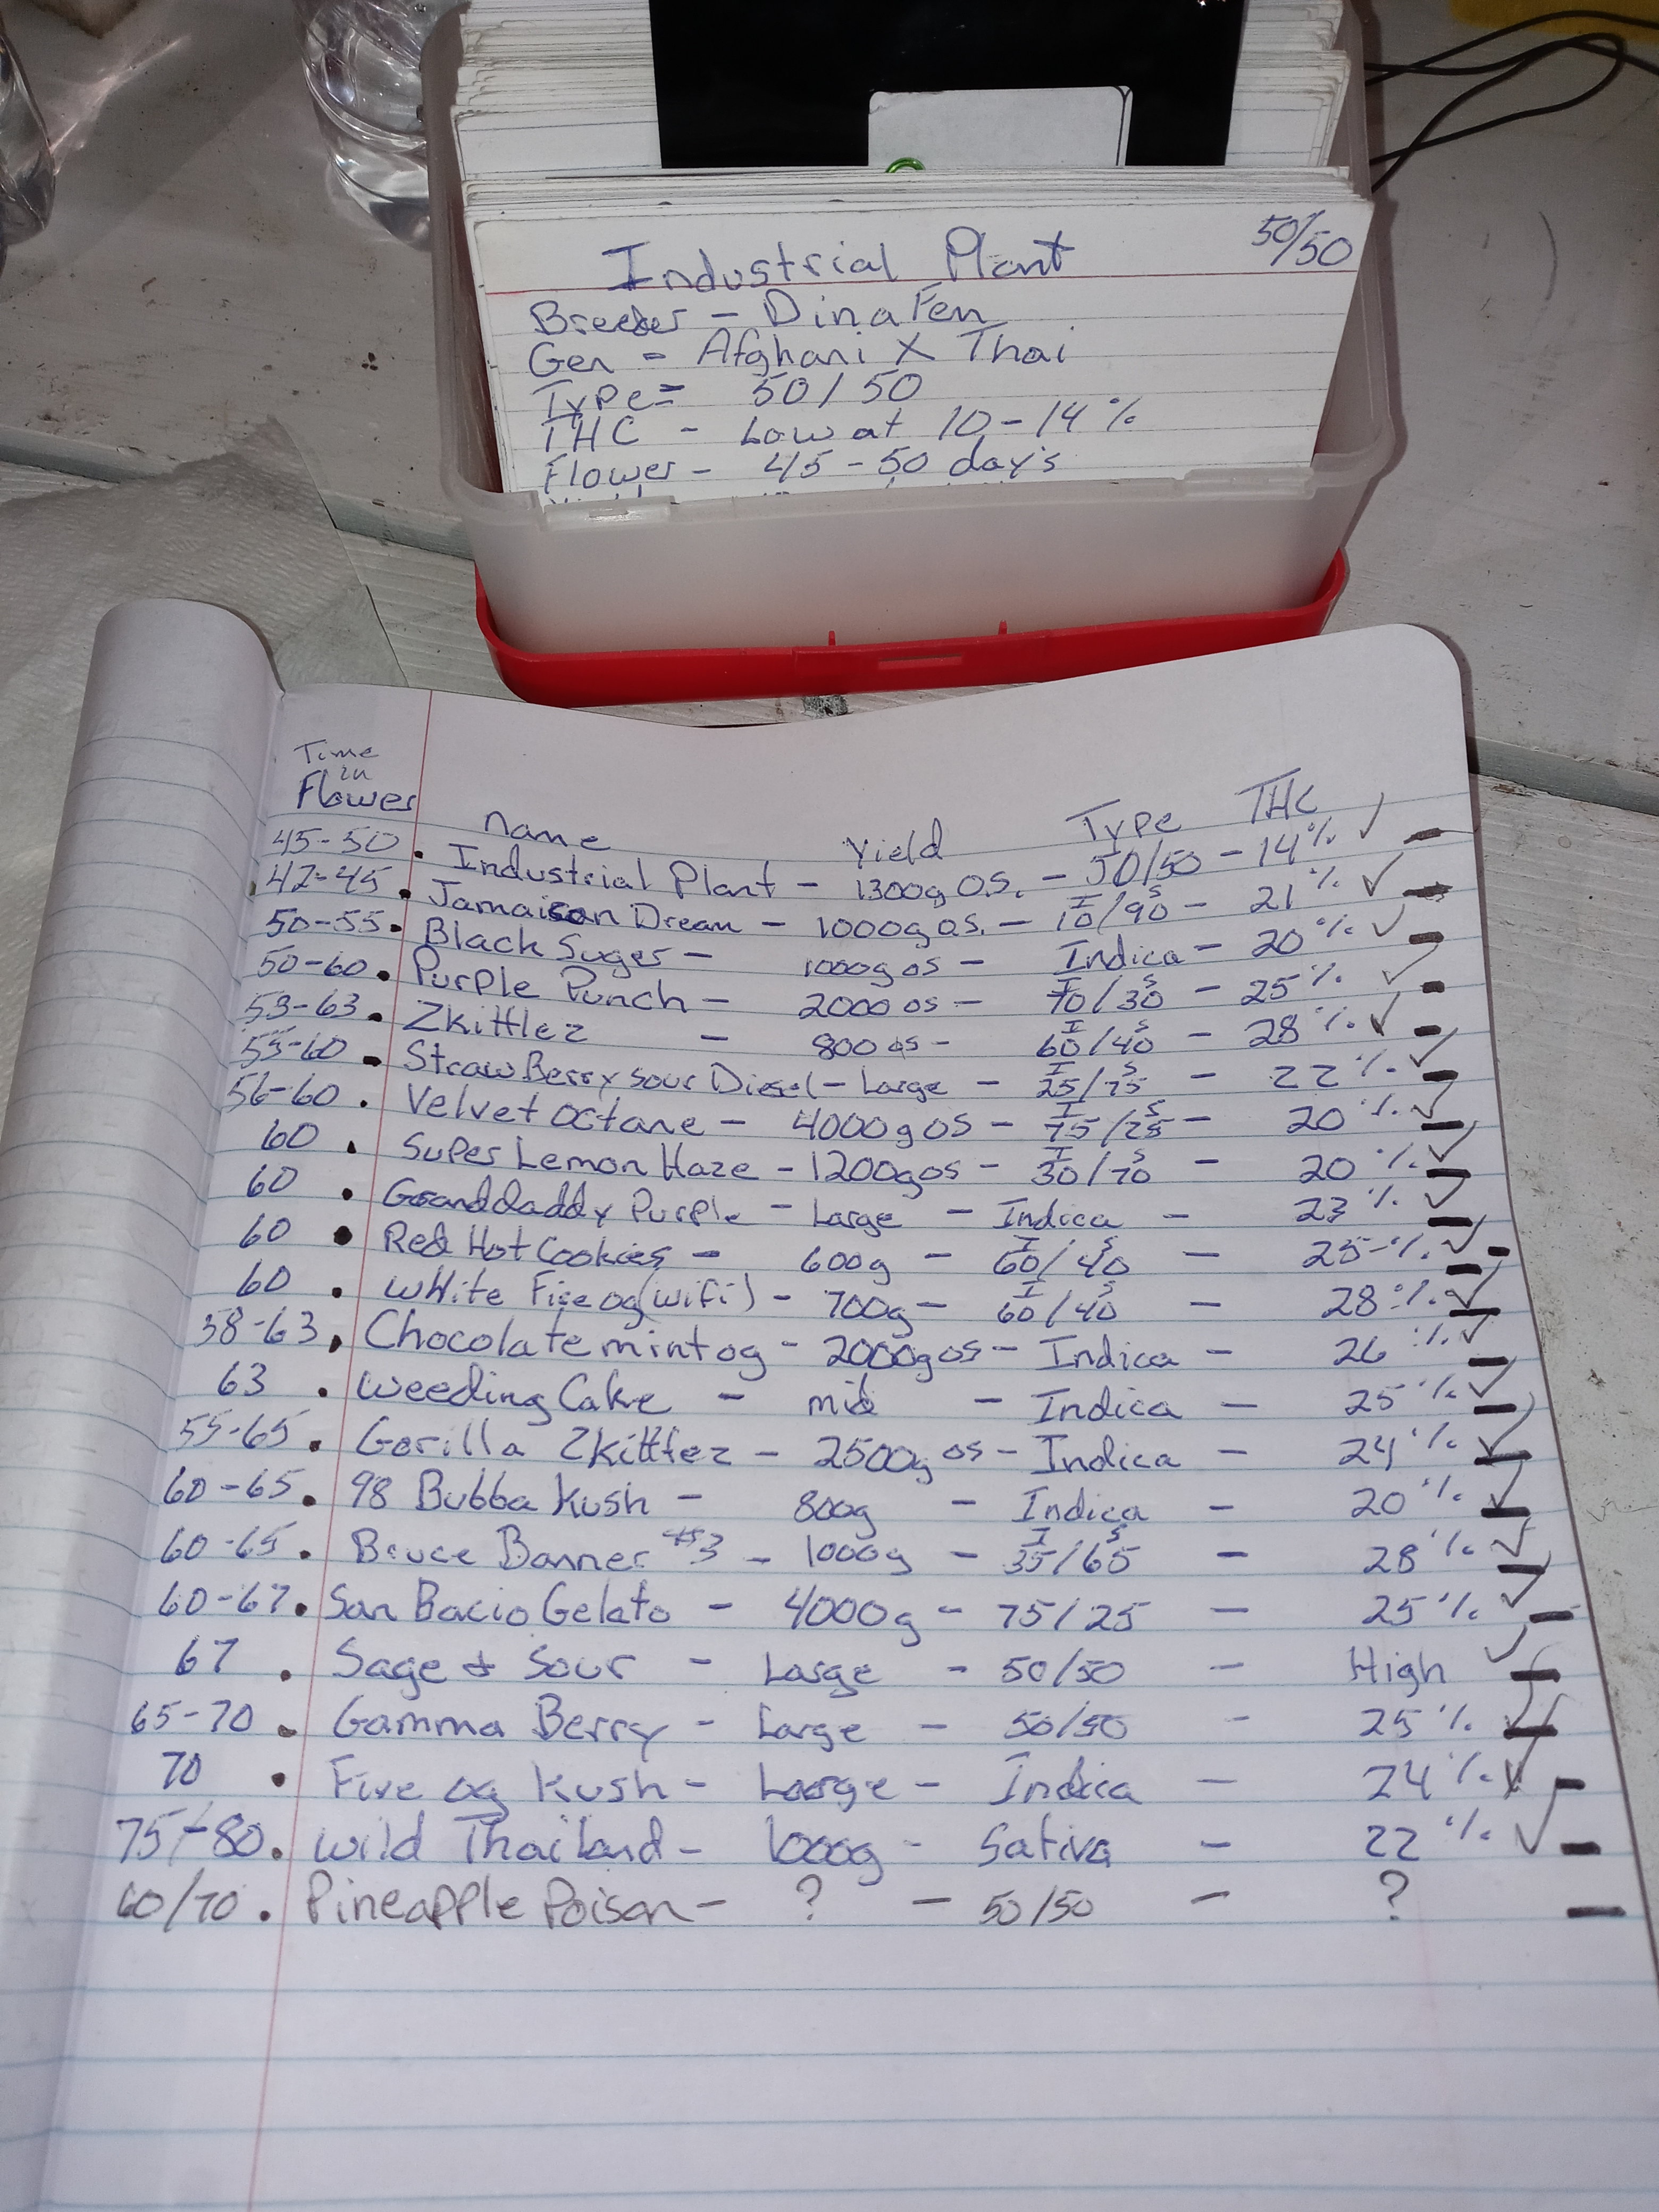 Industrial Plant 50/50
Breeder - Dinafen
Gen = Afghani X Thai
Type = 50/50
THC - Low at 10-14%
Flower - 45-50 day's
Time in Flower name Yield Type THC
45-50. Industrial Plant - 1300g OS. - 50/50 - 14% ✓ -
42-45. Jamaican Dream - 1000g OS. - I 10/S 90 - 21% ✓ -
50-55. Black Suger - 1000g OS - Indica - 20% ✓ -
50-60. Purple Punch - 2000 OS - I 70/S 30 - 25% ✓ -
53-63. Zkittlez - 800 OS - I 60/S 40 - 28% ✓ -
55-60 Straw Berry sour Diesel - Large - I 25/S 75 - 22% ✓ -
56-60. Velvet octane - 4000g OS - I 75/S 25 - 20% ✓ -
60. Super Lemon Haze - 1200g OS - I 30/S 70 - 20% ✓ -
60. Granddaddy Purple - Large - Indica - 23% ✓ -
60. Red Hot Cookies - 600g - I 60/S 40 - 25% ✓ -
60. White Fire og (wifi) - 700g - I 60/S 40 - 28% ✓ -
58-63. Chocolate mint og - 2000g OS - Indica - 26% ✓ -
63. Weeding Cake - mid - Indica - 25% ✓ -
55-65. Gorilla Zkittlez - 2500g OS - Indica - 24% ✓ -
60-65. 98 Bubba Kush - 800g - Indica - 20% ✓ -
60-65. Bruce Banner #3 - 1000g - I 35/S 65 - 28% ✓ -
60-67. San Bacio Gelato - 4000g - 75/25 - 25% ✓ -
67. Sage & Sour - Large - 50/50 - High ✓ -
65-70. Gamma Berry - Large - 50/50 - 25% ✓ -
70. Five og Kush - Large - Indica - 24% ✓ -
75-80. Wild Thailand - 1000g - Sativa - 22% ✓ -
60/70. Pineapple Poison - ? - 50/50 - ? -